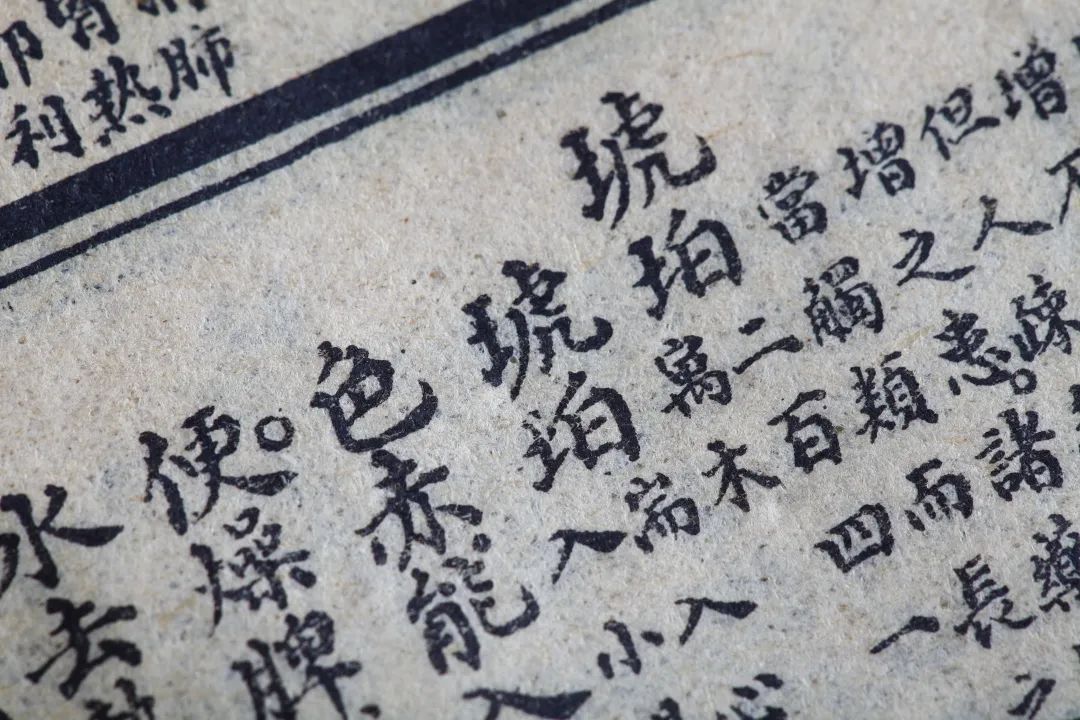 增
但人疎
增之諸
當觸類而長
琥珀二百四一
萬木入
琥珀入小
色赤能入
便。燥脾
水去
肺
胃熱
利